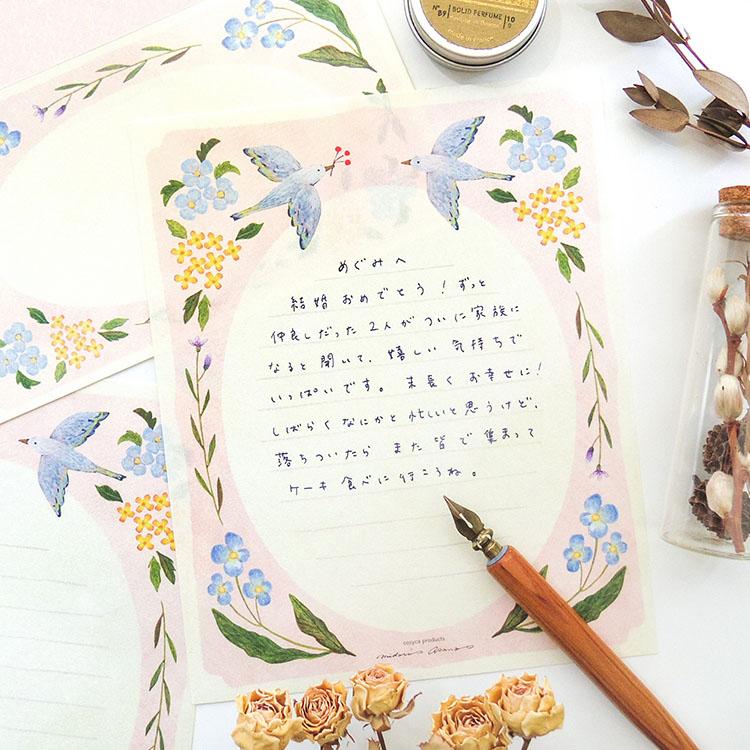 Nº 89
SOLID PERFUME
10 g
made in France
めぐみへ
結婚おめでとう！ずっと
仲良しだった2人がついに家族に
なると聞いて、嬉しい気持ちで
いっぱいです。末長くお幸せに！
しばらくなにかと忙しいと思うけど、
落ちついたらまた皆で集まって
ケーキ食べに行こうね。
cozyca products
midori Asano